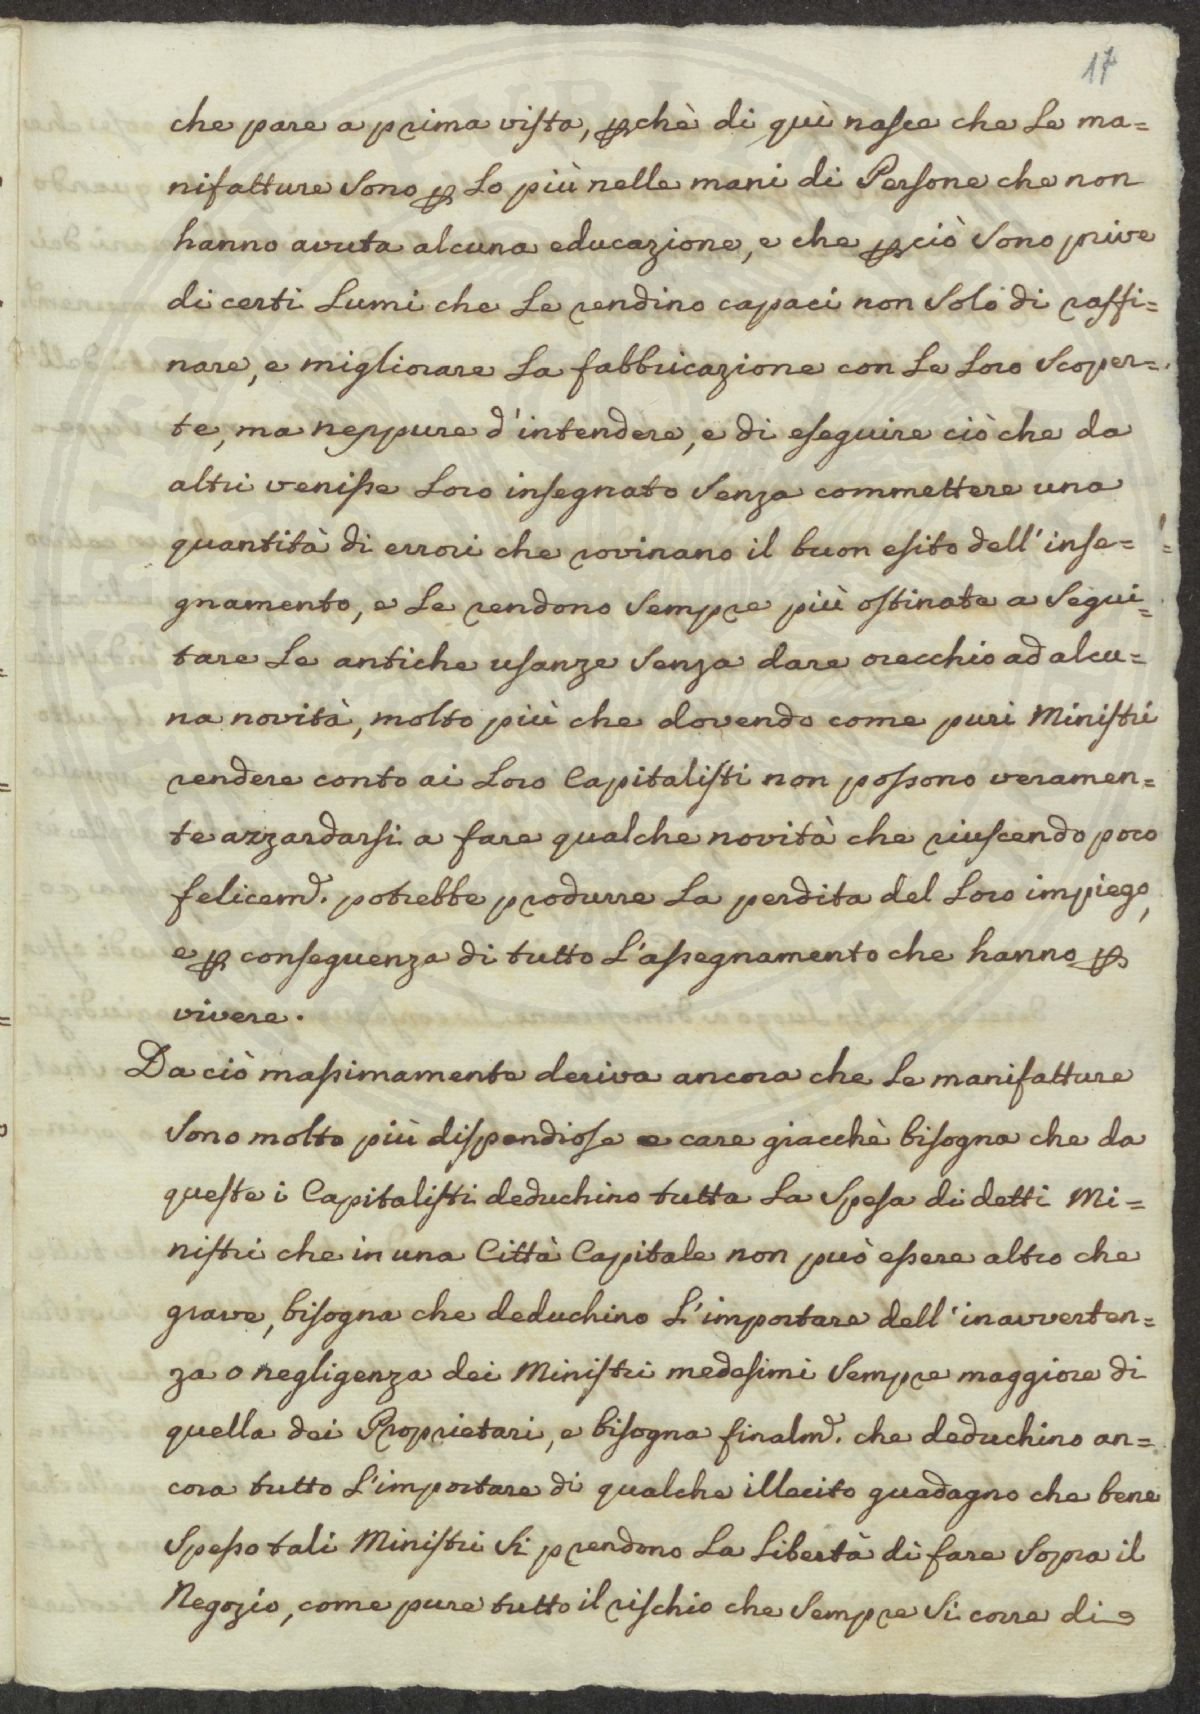 17
che pare a prima vista, ꝑchè di quì nasce che le ma=
nifatture sono ꝑ lo più nelle mani di Persone che non
hanno avuta alcuna educazione, e che ꝑciò sono prive
di certi lumi che le rendino capaci non solo di raffi=
nare, e migliorare la fabbricazione con le loro scoper=
te, ma neppure d'intendere, e di eseguire ciò che da
altri venisse loro insegnato senza commettere una
quantità di errori che rovinano il buon esito dell'inse=
gnamento, e le rendono sempre più ostinate a segui=
tare le antiche usanze senza dare orecchio ad alcu=
na novità, molto più che dovendo come puri Ministri
rendere conto ai loro Capitalisti non possono veramen=
te azzardarsi a fare qualche novità che riuscendo poco
felicemẽ. potrebbe produrre la perdita del loro impiego,
e ꝑ conseguenza di tutto l'assegnamento che hanno ꝑ
vivere.
Da ciò massimamente deriva ancora che le manifatture
sono molto più dispendiose e care giacchè bisogna che da
queste i Capitalisti deduchino tutta la spesa di detti Mi=
nistri che in una Città Capitale non può essere altro che
grave, bisogna che deduchino l'importare dell'inavverten=
za o negligenza dei Ministri medesimi sempre maggiore di
quella dei Proprietari, e bisogna finalmẽ. che deduchino an=
cora tutto l'importare di qualche illecito guadagno che bene
spesso tali Ministri si prendono la libertà di fare sopra il
Negozio, come pure tutto il rischio che sempre si corre di